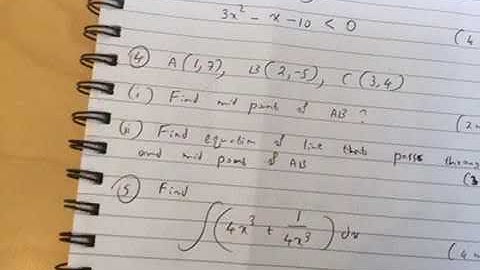 3x² - x - 10 < 0
(4
④ A(1,7), B(2,-5), C(3,4)
(i) Find mid point of AB?
(2
(ii) Find equation of line that pass throug
and mid point of AB
(3
⑤ Find
∫(4x³ + 1/4x³) dx
(4